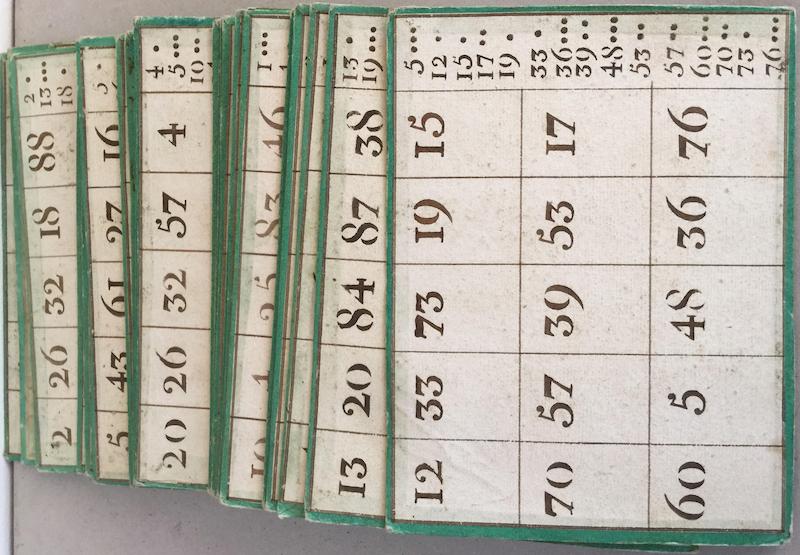 2 26 32 18 88
2 .
13 ...
18 .
5 43 61 27 16
5 .
20 26 32 57 4
4 .
5 ...
10 ...
1 25 83 46
1 ...
13 20 84 87 38
13 .
19 ...
12 33 73 19 15
70 57 39 53 17
60 5 48 36 76
5 ...
12 .
15 ..
17 ..
19 .
33 .
36 ...
39 ...
48 ...
53 ..
57 ..
60 ...
70 ..
73 .
76 ...